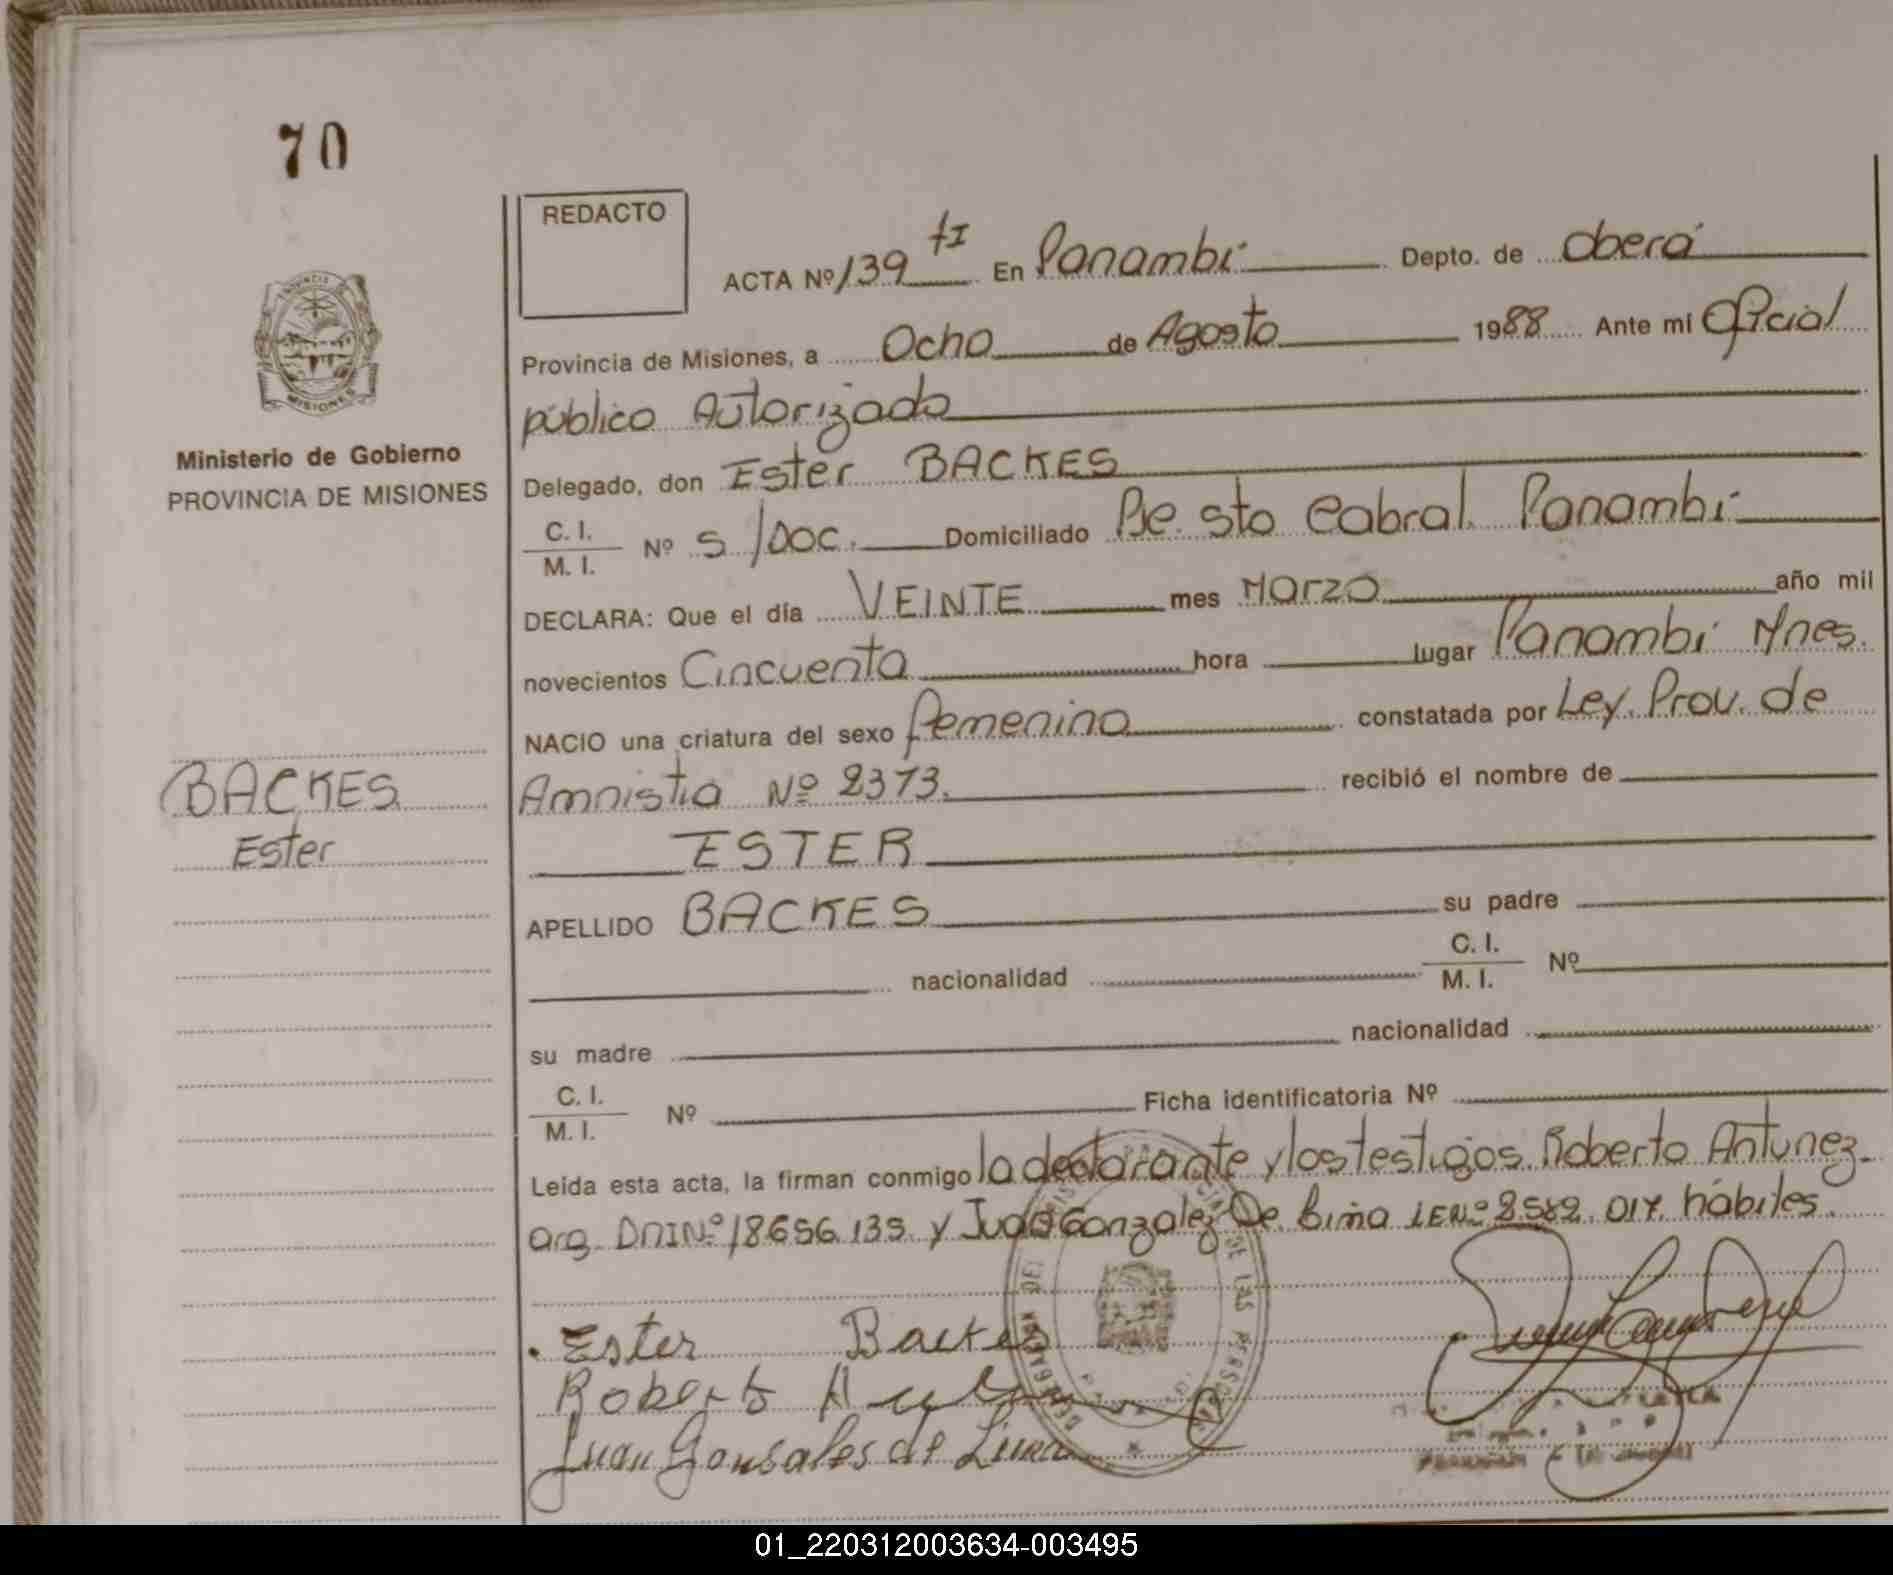 70
REDACTO
ACTA Nº 139 tI En Panambí Depto. de Oberá
Provincia de Misiones, a Ocho de Agosto 1988 Ante mi Oficial
público Autorizado
Delegado, don Ester BACKES
C. I.
M. I. Nº S/Doc. Domiciliado Pje. Sto Cabral. Panambí
DECLARA: Que el día VEINTE mes Marzo año mil
novecientos Cincuenta hora lugar Panambí Mnes.
NACIO una criatura del sexo femenino constatada por Ley. Prov. de
Amnistia Nº 2373. recibió el nombre de
ESTER
APELLIDO BACKES su padre
nacionalidad C. I.
M. I. Nº
su madre nacionalidad
C. I.
M. I. Nº Ficha identificatoria Nº
Leída esta acta, la firman conmigo la declarante y los testigos. Roberto Antunez.
arg. DNI Nº 18656.135 y Juan Gonzalez De Lima LE Nº 8.582.017. hábiles.
Ester Backes
Roberto
Juan Gonsales de Lima
PROVINCIA DE
MISIONES
Ministerio de Gobierno
PROVINCIA DE MISIONES
BACKES
Ester
DE LAS PERSONAS
01_220312003634-003495